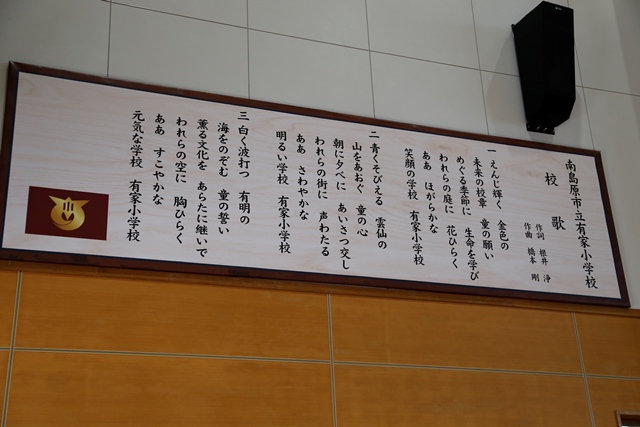 南島原市立有家小学校
校歌
作詞 根井 浄
作曲 橋本 剛
一 えんじ輝く 金色の
未来の校章 童の願い
めぐる季節に 生命を学び
われらの庭に 花ひらく
ああ ほがらかな
笑顔の学校 有家小学校
二 青くそびえる 雲仙の
山をあおぐ 童の心
朝に夕べに あいさつ交し
われらの街に 声わたる
ああ さわやかな
明るい学校 有家小学校
三 白く波打つ 有明の
海をのぞむ 童の誓い
薫る文化を あらたに継いで
われらの空に 胸ひらく
ああ すこやかな
元気な学校 有家小学校